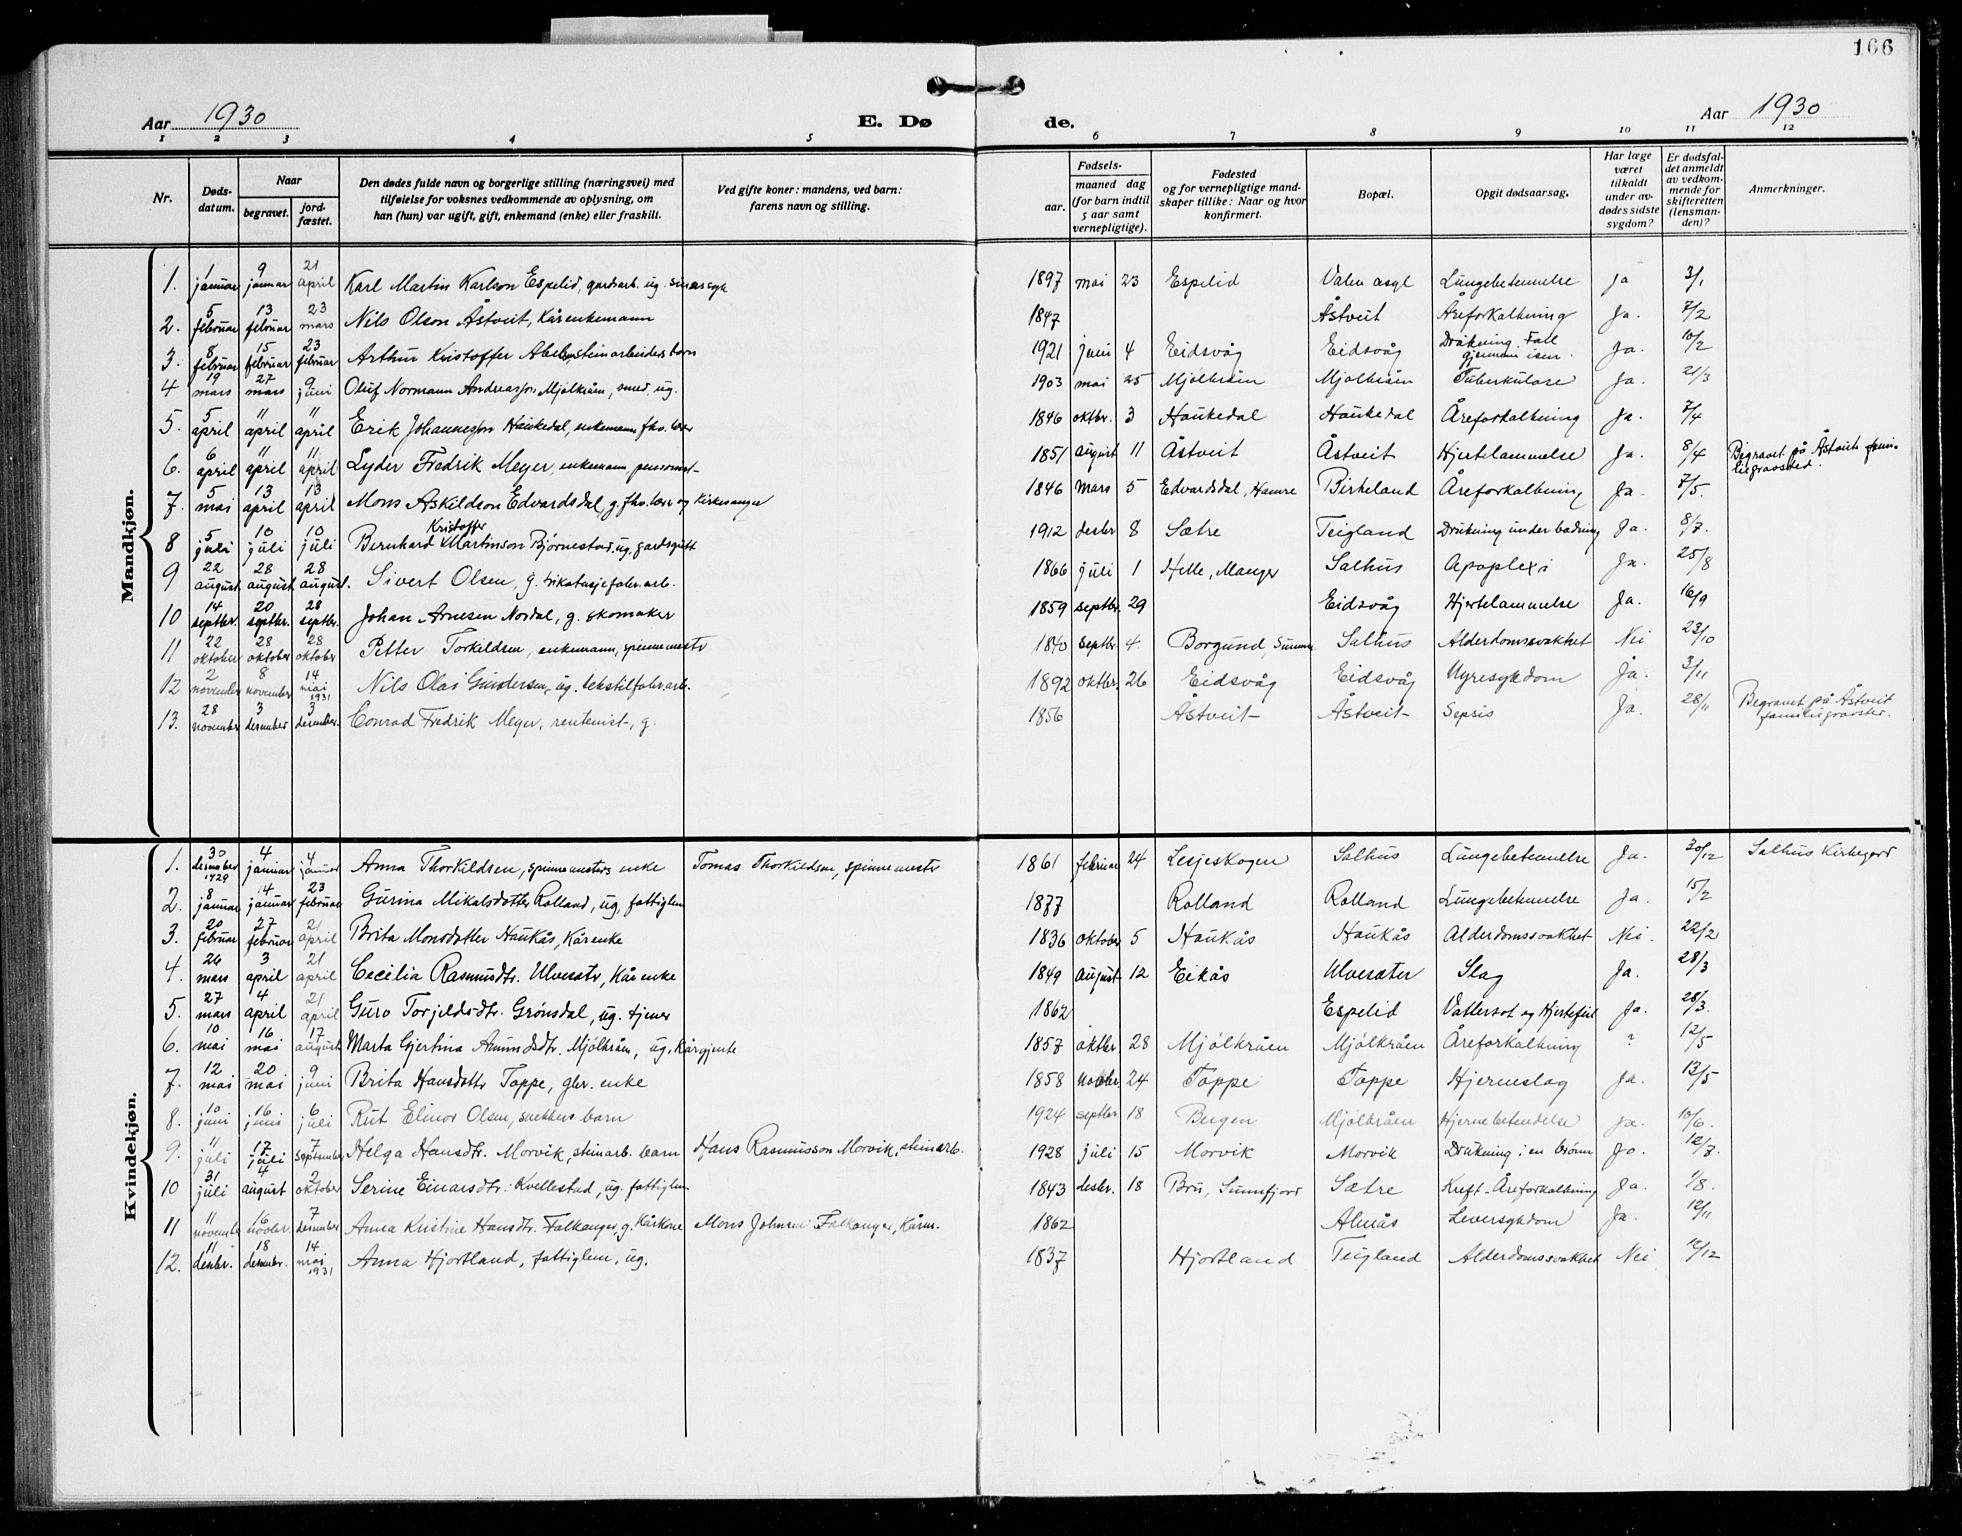 166
Aar 1930
E. Døde.
Aar 1930
1 2 3 4 5 6 7 8 9 10 11 12
Nr.
Døds-datum.
Naar
begravet.
jord-fæstet.
Den dødes fulde navn og borgerlige stilling (næringsvei) med
tilføielse for voksnes vedkommende av oplysning, om
han (hun) var ugift, gift, enkemand (enke) eller fraskilt.
Ved gifte koner: mandens, ved barn:
farens navn og stilling.
Fødsels-
aar.
maaned dag
(for barn indtil
5 aar samt
vernepligtige).
Fødested
og for vernepligtige mand-
skaper tillike: Naar og hvor
konfirmert.
Bopæl.
Opgit dødsaarsag.
Har læge
været
tilkaldt
under av-
dødes sidste
sygdom?
Er dødsfal-
det anmeldt
av vedkom-
mende for
skifteretten
(lensman-
den)?
Anmerkninger.
Mandkjøn.
1. 1 januar 9 januar 21 april Karl Martin Karlson Espelid, gardsarb. ug. sinnssyk 1897 mai 23 Espelid Valen asyl Lungebetennelse Ja 3/1
2. 5 februar 13 februar 23 mars Nils Olson Åstveit, Kårenkemann 1847 Åstveit Åreforkalkning Ja. 7/2
3. 8 februar 15 februar 23 februar Arthur Kristoffer steinarbeiders barn 1921 juni 4 Eidsvåg Eidsvåg Drukning. Fall gjennem isen. Ja. 10/2
4 19 mars 27 mars 9 juni Oluf Normann Andreasson Mjølkråen, smed, ug. 1903 mai 25 Mjølkråen Mjølkråen Tuberkulose Ja. 21/3
5. 5 april 11 april 11 april Erik Johannesson Haukedal, enkemann, fhv. lærer 1846 oktbr. 3 Haukedal Haukedal Åreforkalkning Ja. 7/4
6. 6 april 11 april 11 april Lyder Fredrik Meyer, enkemann, pensionist 1851 august 11 Åstveit Åstveit Hjertelammelse Ja. 8/4 Begravet på Åstveit familiegravsted.
7. 5 mai 13 april 13 april Mons Askildson Edvardsdal, g. fhv. lærer og kirkesanger 1846 Mars 5 Edvardsdal, Hamre Birkeland Åreforkalkning Ja. 7/5.
8 5 juli 10 juli 10 juli Bernhard Kristoffer Martinson Bjørnestad, ug. gardsgutt 1912 desbr 8 Sætre Teigland Drukning under badning Ja. 8/7.
9 22 august 28 august 28 august. Sivert Olsen, g. trikotasjefabr. arb. 1866 juli 1 Helle, Manger Salhus Apoplexi Ja. 25/8
10 14 septbr. 20 septbr. 28 septbr. Johan Arnesen Nordal, g. skomaker 1859 septbr. 29 Eidsvåg Hjertelammelse Ja. 16/9
11 22 oktober 28 oktober 28 oktober Petter Torkildsen, enkemann, spinnemester 1840 septbr 4. Borgund, Sunnm. Salhus Alderdomssvakhet Nei 23/10
12 2 november 8 november 14 mai 1931 Nils Olai Gundersen, ug. tekstilfabr.arb. 1892 oktbr. 26 Eidsvåg Eidsvåg Nyresykdom Ja. 3/11
13. 28 november 3 desember 3 desember. Conrad Fredrik Meyer, rentenist, g. 1856 Åstveit Åstveit Sepsis Ja. 28/11 Begravet på Åstveit familiegravsted.
Kvindekjøn.
1. 30 desember 1929 4 januar 4 januar Anna Thorkildsen, spinnemesters enke Tomas Thorkildsen, spinnemester 1861 februar 24 Lesjeskogen Salhus Lungebetennelse Ja. 30/12 Salhus Kirkegard
2. 8 januar 14 januar 23 februar Gurina Mikalsdotter Rolland, ug, fattiglem 1877 Rolland Rolland Lungebetennelse Ja. 15/2
3. 20 februar 27 februar 21 april Brita Monsdotter Haukås, Kårenke 1836 oktober 5 Haukås Haukås Alderdomssvakhet Nei. 22/2
4. 26 mars 3 april 21 april Cecilia Rasmusdtr. Ulvesætr, Kårenke 1849 August 12 Eikås Ulvesæter Slag Ja. 28/3
5. 27 mars 4 april 21 april Guro Torjeldsdtr. Grønsdal, ug. tjener 1862 Espelid Vattersot og Hjertefeil Ja. 28/3.
6. 10 mai 16 mai 17 august Marta Gjertina Amundsdtr. Mjølkråen, ug. Kårgjente 1857 oktbr 28 Mjølkråen Mjølkråen Åreforkalkning ? 12/5
7. 12 mai 20 mai 9 juni Brita Hansdottr Toppe, gbr. enke 1858 novbr 24 Toppe Toppe Hjerneslag Ja. 13/5
8. 10 juni 16 juni 6 juli Rut Elinor Olsen, snekkers barn 1924 septbr 18 Bergen Mjølkråen Hjernebetendelse Ja. 10/6.
9. 11 juli 17 juli 7 september Helga Hansdtr. Morvik, steinarb. barn Hans Rasmusson Morvik, steinarb. 1928 juli 15 Morvik Morvik Drukning i en brønn Ja. 12/7.
10 31 juli 4 august 2 oktober Serine Einarsdtr. Kvellestad, ug. fattiglem 1843 desbr. 18 Bru, Sunnfjord Sætre Kreft - Åreforkalkning Ja. 1/8.
11 11 november 16 novbr. 7 desember Anna Kristine Hansdtr. Falkanger, g. Kårkone Mons Johnsen Falkanger, Kårm. 1862 Almås Leversykdom Ja. 12/11
12. 11 desbr. 18 desembr. 14 mai 1931 Anna Hjortland, fattiglem, ug. 1837 Hjortland Teigland Alderdomssvakhet Nei 12/12